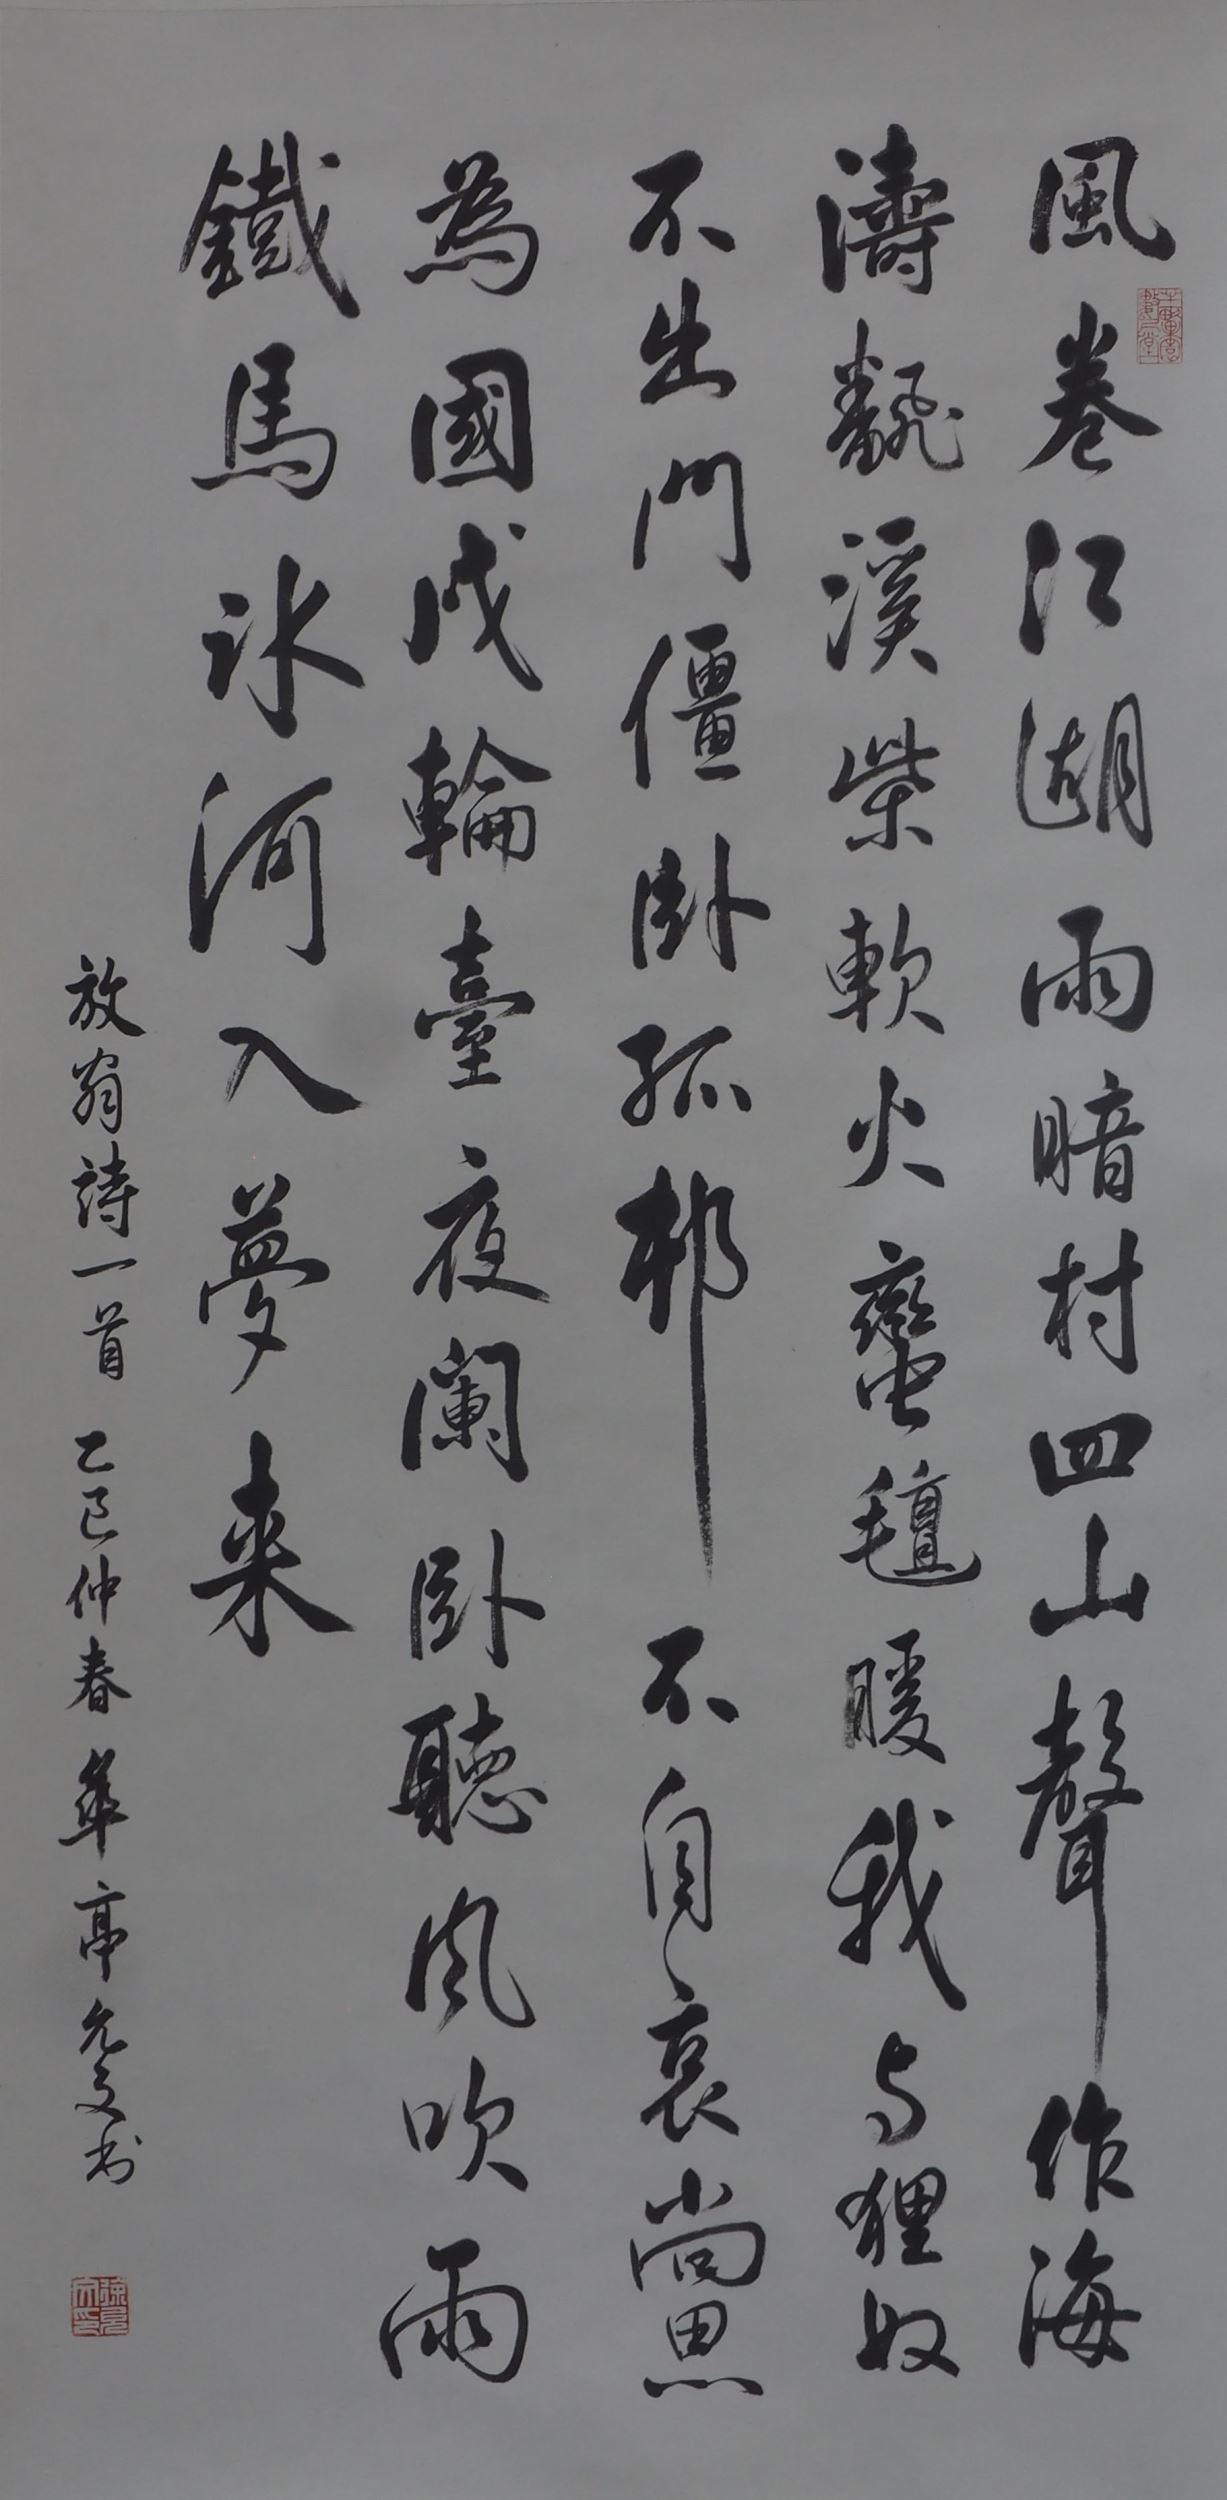 風卷江湖雨暗村四山聲作海
濤飜溪柴軟火蠻氈暖我与狸奴
不出門僵卧孤邨不自哀尚思
為國戍輪臺夜闌卧聽風吹雨
鐵馬冰河入夢来
放翁詩一首 乙巳仲春 華亭允文书